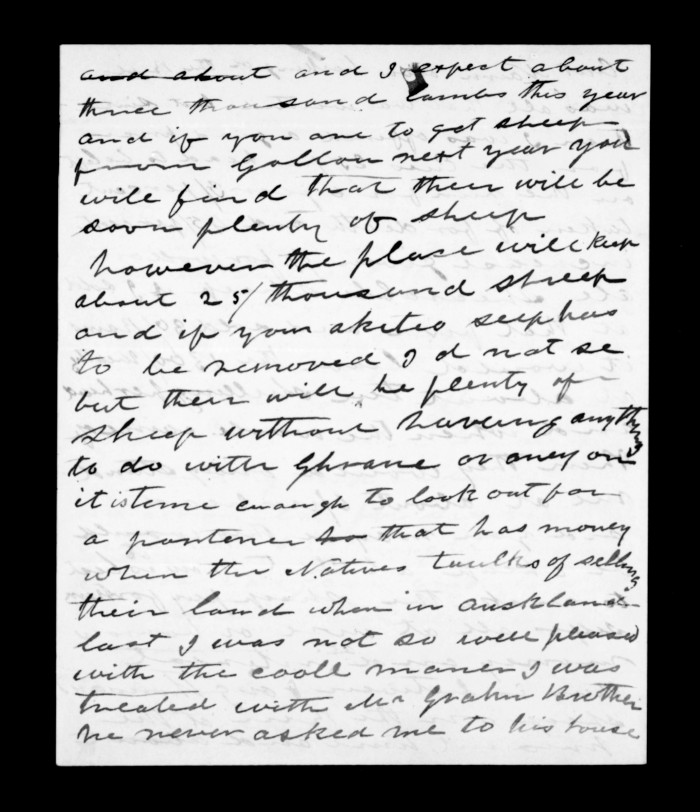 and about and I expect about
three thousand lambs this year
and if you are to get sheep
from Gollan next year you
will find that ther will be
soon plenty of sheep
however the plase will keep
about 25/ thousand sheep
and if your akiteo seep has
to be removed I d not se
but ther will be plenty of
sheep without having anything
to do with Ghrane or aney on
it is teme enough to look out for
a partener that has money
when the Natives taulks of selling
their land when in auckland
last I was not so well pleased
with the cooll maner I was
treated with Mr Grahn Brother
he never asked me to his house